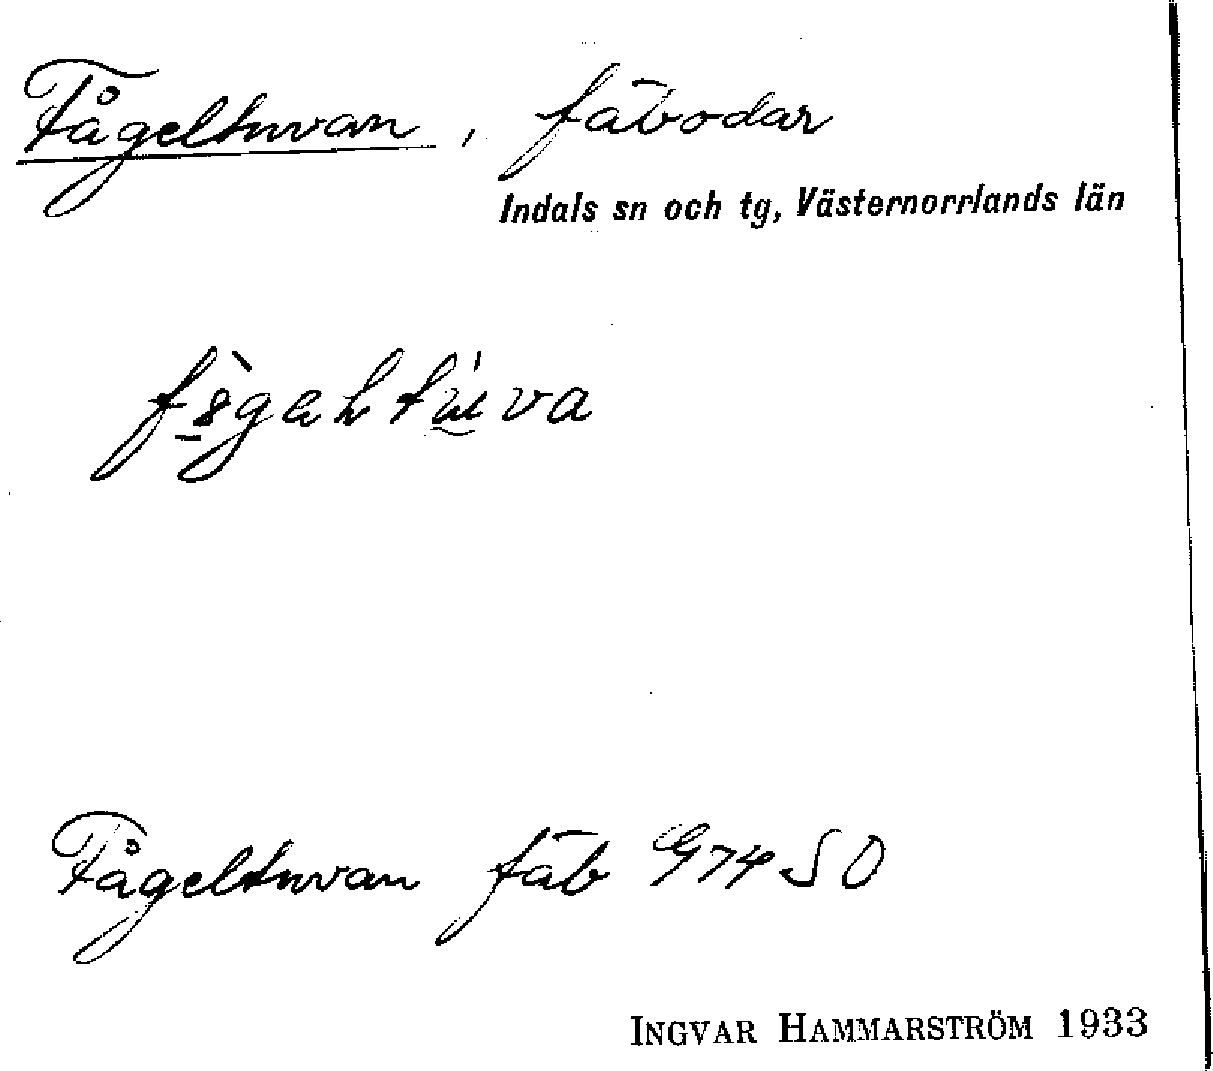 Fågeltuvan, fäbodar
Indals sn och tg, Västernorrlands län
Fågeltuvan fäb G74 SO
INGVAR HAMMARSTRÖM 1933